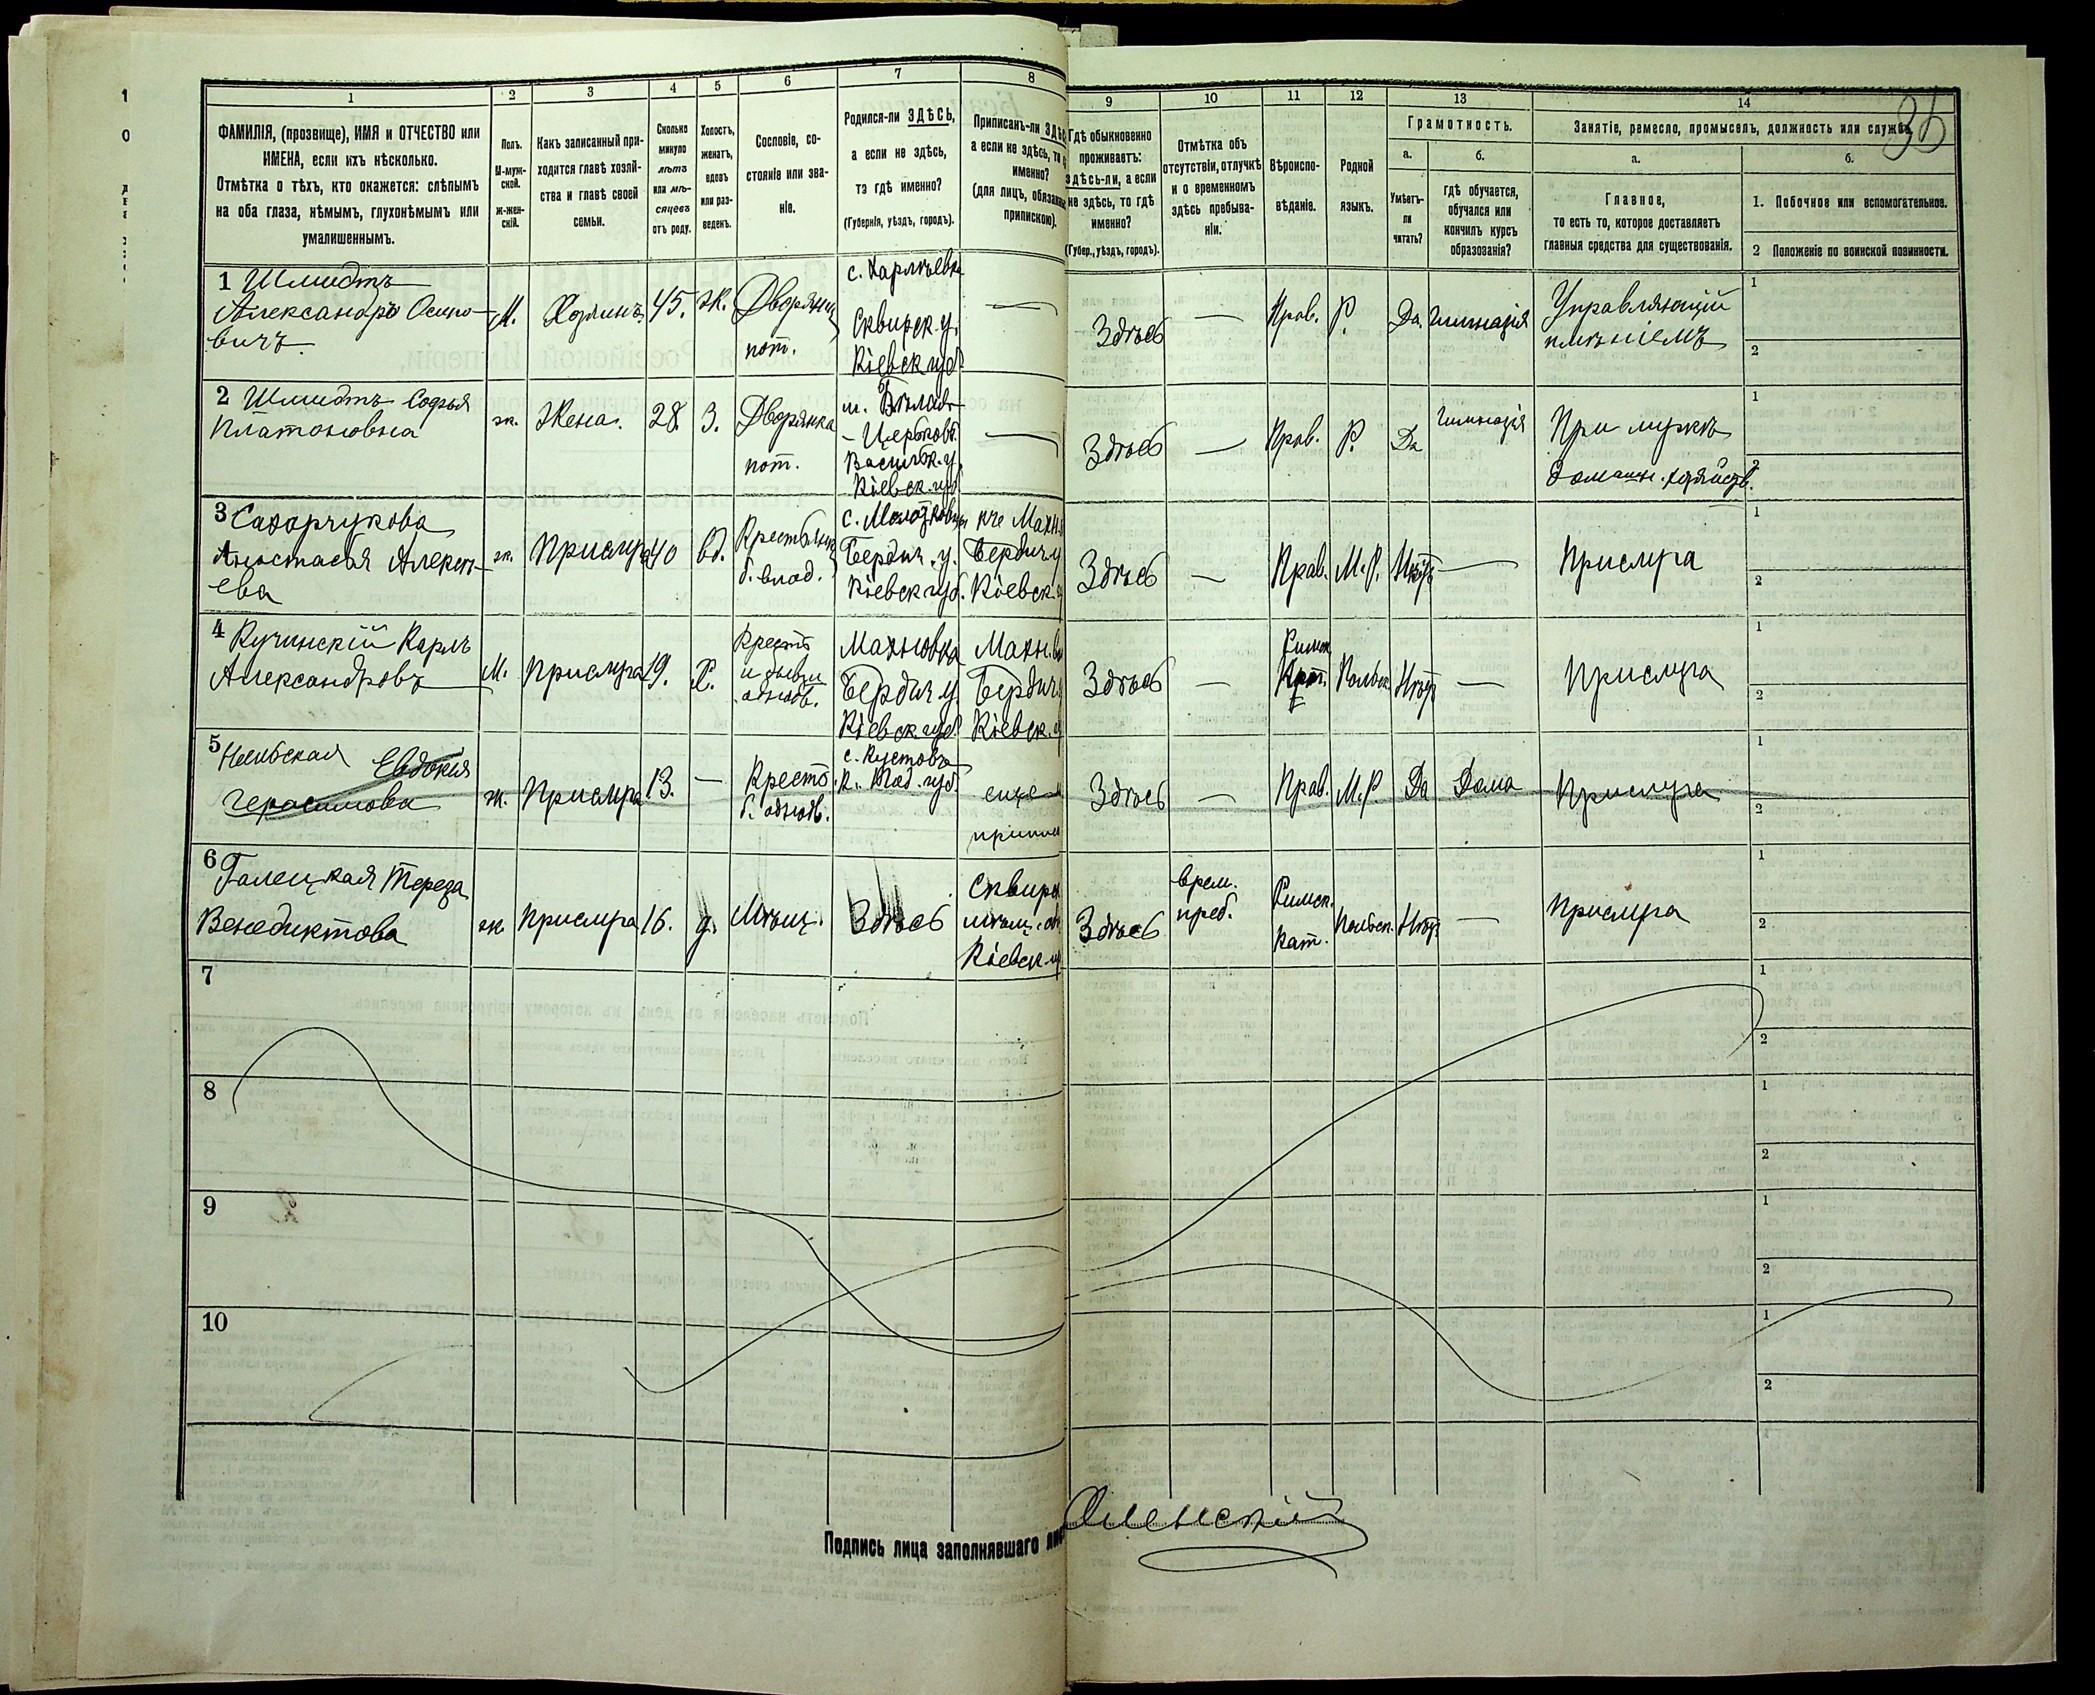 1
2
3
4
5
6
7
8
ФАМИЛІЯ, (прозвище), ИМЯ и ОТЧЕСТВО или
ИМЕНА, если ихъ нѣсколько.
Отмѣтка о тѣхъ, кто окажется: слѣпымъ
на оба глаза, нѣмымъ, глухонѣмымъ или
умалишеннымъ.
Полъ.
М-муж-
ской.
ж-жен-
скій.
Какъ записанный при-
ходится главѣ хозяй-
ства и главѣ своей
семьи.
Сколько
минуло
лѣтъ
или мѣ-
сяцевъ
отъ роду.
Холостъ,
женатъ,
вдовъ
или раз-
веденъ.
Сословіе, со-
стояніе или зва-
ніе.
Родился-ли ЗДѢСЬ,
а если не здѣсь,
то гдѣ именно?
(Губернія, уѣздъ, городъ).
Приписанъ-ли ЗДѢС
а если не здѣсь, то
именно?
(для лицъ, обязан
припискою).
1 Шмидтъ
Александръ Осипо-
вичъ
М.
Хозяинъ
45.
Ж.
Дворянинъ
пот.
с. Харлѣевка
Сквирск. у.
Кіевск. губ.
—
2 Шмидтъ Софья
Платоновна
ж.
Жена.
28.
З.
Дворянка
пот.
м. Бѣлая
-Церковь
Васильк. у.
Кіевск. губ.
—
3 Сахарчукова
Анастасья Алексѣ-
ева
ж.
Прислуга
40
вд.
б. влад.
Бердич. у.
Кіевск. губ.
Бердич. у
Кіевск.
4 Кучинскій Карлъ
Александровъ
М.
Прислуга
19.
Х.
Крест.
Махновка
Бердич. у.
Кіевск. губ.
Махн.
Бердич.
Кіевск.
5
Евдокія
Герасимова
ж.
Прислуга
13.
—
Крест.
Под. губ.
еще
6 Галецкая Тереза
Венедиктова
ж
Прислуга
16.
д.
Мѣщ.
Здѣсь
Сквирс
мѣщ. об
Кіевск.
7
8
9
10
Подпись лица заполнявшаго лис
9
10
11
12
13
14
36
Гдѣ обыкновенно
проживаетъ:
здѣсь-ли, а если
не здѣсь, то гдѣ
именно?
(Губер., уѣздъ, городъ).
Отмѣтка объ
отсутствіи, отлучкѣ
и о временномъ
здѣсь пребыва-
ніи.
Вѣроиспо-
вѣданіе.
Родной
языкъ.
Грамотность.
а.
Умѣетъ-
ли
читать?
б.
гдѣ обучается,
обучался или
кончилъ курсъ
образованія?
Занятіе, ремесло, промыселъ, должность или служба.
а.
Главное,
то есть то, которое доставляетъ
главныя средства для существованія.
б.
1. Побочное или вспомогательное.
2 Положеніе по воинской повинности.
Здѣсь
—
Прав.
Р.
Да.
гимназія
Управляющій
имѣніемъ
1
2
Здѣсь
—
Прав.
Р.
Да
гимназія
При мужѣ
домашн. хозяйств.
1
2
Здѣсь
—
Прав.
М.Р.
Нѣтъ
—
Прислуга
1
2
Здѣсь
—
Римск
Кат.
Польск.
Нѣтъ
—
Прислуга
1
2
Здѣсь
—
Прав.
М.Р.
Да
Дома
Прислуга
1
2
Здѣсь
врем.
преб.
Римск.
Кат.
Польск.
Нѣтъ
—
Прислуга
1
2
1
2
1
2
1
2
1
2